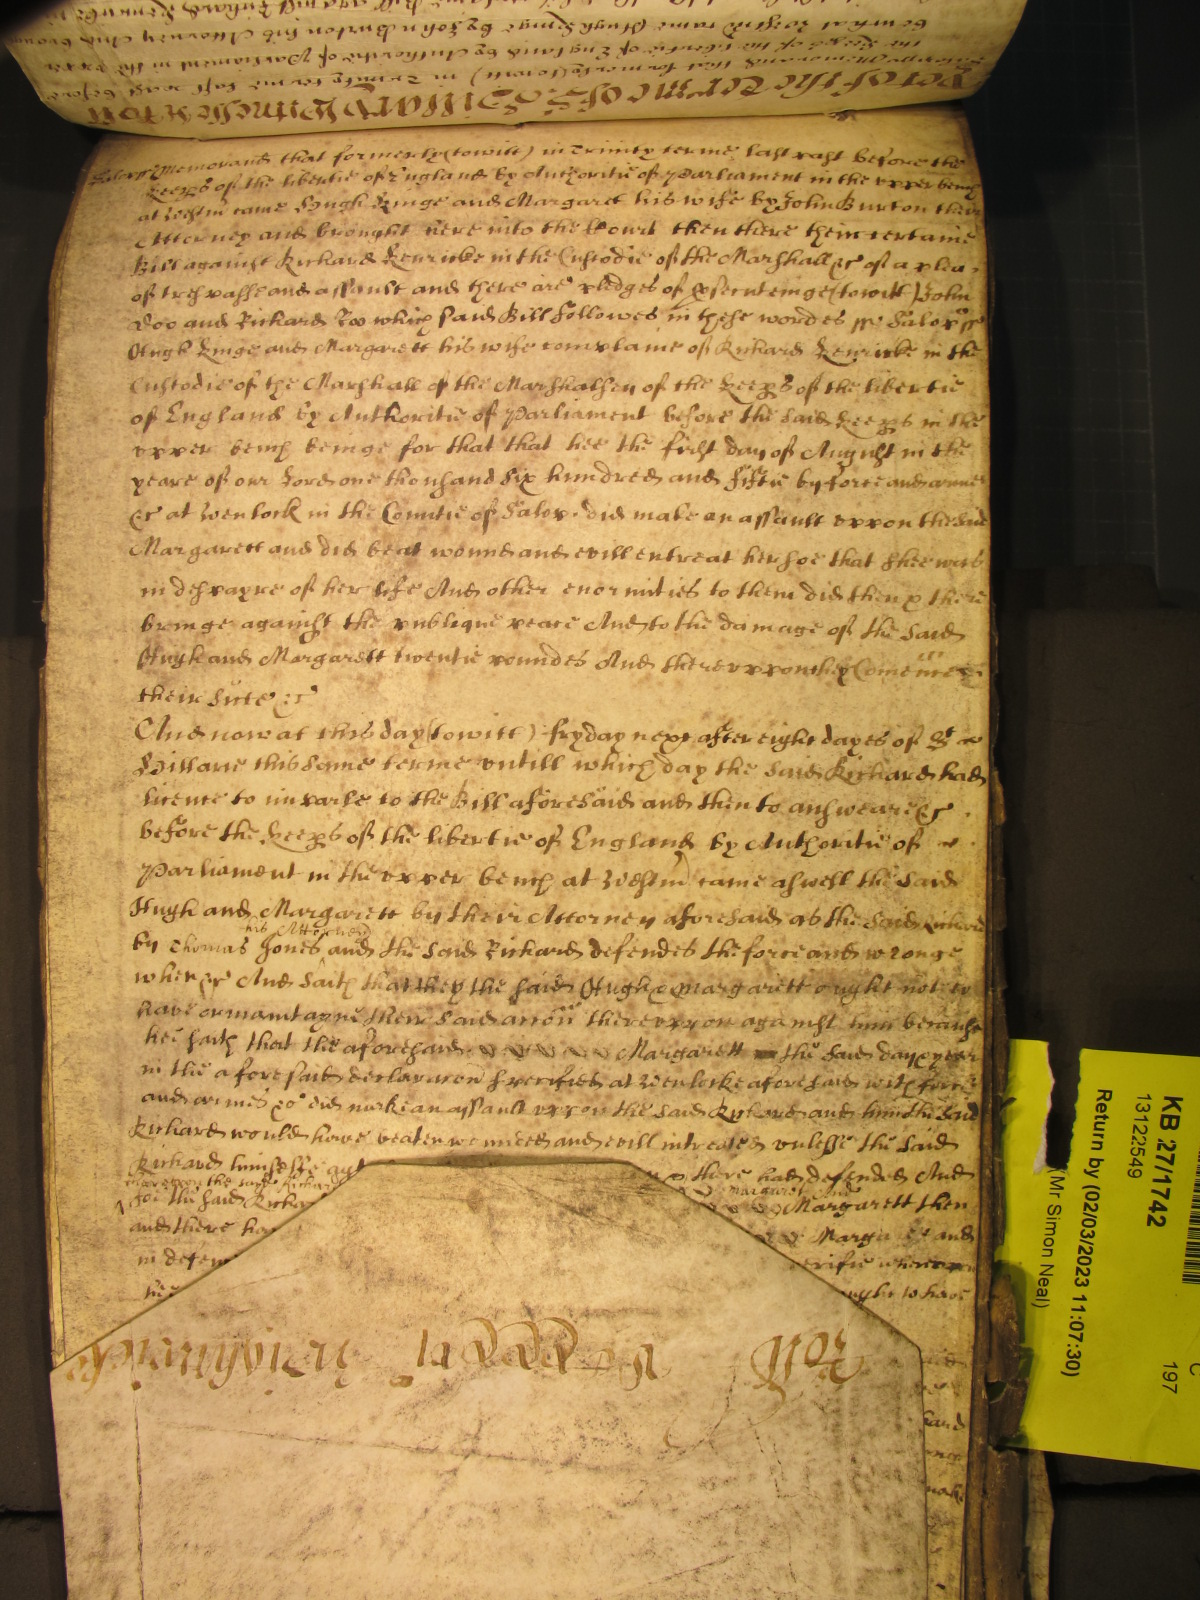 yet of the terme of S Hillary Witnesse Roll
Memorand that formerly (towitt) in Trinity terme last past before
the Keeps of the libertie of England by Authoritie of Parliament in the upper
bench at Westm came Hugh Kinge by John Burton his Attorney And brought
Salop ss Memorand that formerly (towitt) in Trinity terme last past before the
Keeps of the libertie of England by Authoritie of Parliament in the upper bench
at Westm came Hugh Kinge and Margarett his wife by John Burton their
Attorney and brought here into the Court then there their certaine
Bill against Richard Kenricke in the Custodie of the Marshall &c of a plea
of trespasse and assault and there are pledges of prsecuteinge (towitt) John
Doo and Richard Roo which said Bill followes in these wordes ss Salop ss
Hugh Kinge and Margarett his wife complaine of Richard Kenricke in the
Custodie of the Marshall of the Marshalsey of the Keeps of the libertie
of England by Authoritie of Parliament before the said Keeps in the
upper bench beinge for that that hee the first day of August in the
yeare of our Lord one thousand six hundred and fiftie by force and armes
&c at Wenlock in the Countie of Salop did make an assault uppon the said
Margarett and did beat wound and evill entreat her soe that shee was
in dispayre of her life And other enormities to them did then & there
bringe against the publique peace And to the damage of the said
Hugh and Margarett twentie poundes And thereuppon they Comence
their suite &c
And now at this day (towitt) fryday next after eight dayes of St
Hillarie this same terme untill which day the said Richard had
licence to imparle to the Bill aforesaid and then to answeare &c
before the Keeps of the libertie of England by Authoritie of
Parliament in the upper bench at Westm came aswell the said
Hugh and Margarett by their Attorney aforesaid as the said Richard
by Thomas Jones his Attorney and the said Richard defendes the force and wronge
when &c And saith that they the said Hugh & Margarett ought not to
have or maintayne their said accon thereuppon against him because
hee saith that the aforesaid Margarett the said day & yeare
in the aforesaid declaracon specified at Wenlocke aforesaid with force
and armes &c did make an assault uppon the said Richard and him the said
Richard would have beaten wounded and evill intreated unlesse the said
Richard himselfe agt there had defended And
thereuppon the said Richard margarett
soe the said Richard Margarett then
and there had Margarett and
in defen verifie whereuppon
hee ought to have
Roll
hand
KB 27/1742
13122549
Return by (02/03/2023 11:07:30)
(Mr Simon Neal)
C
197